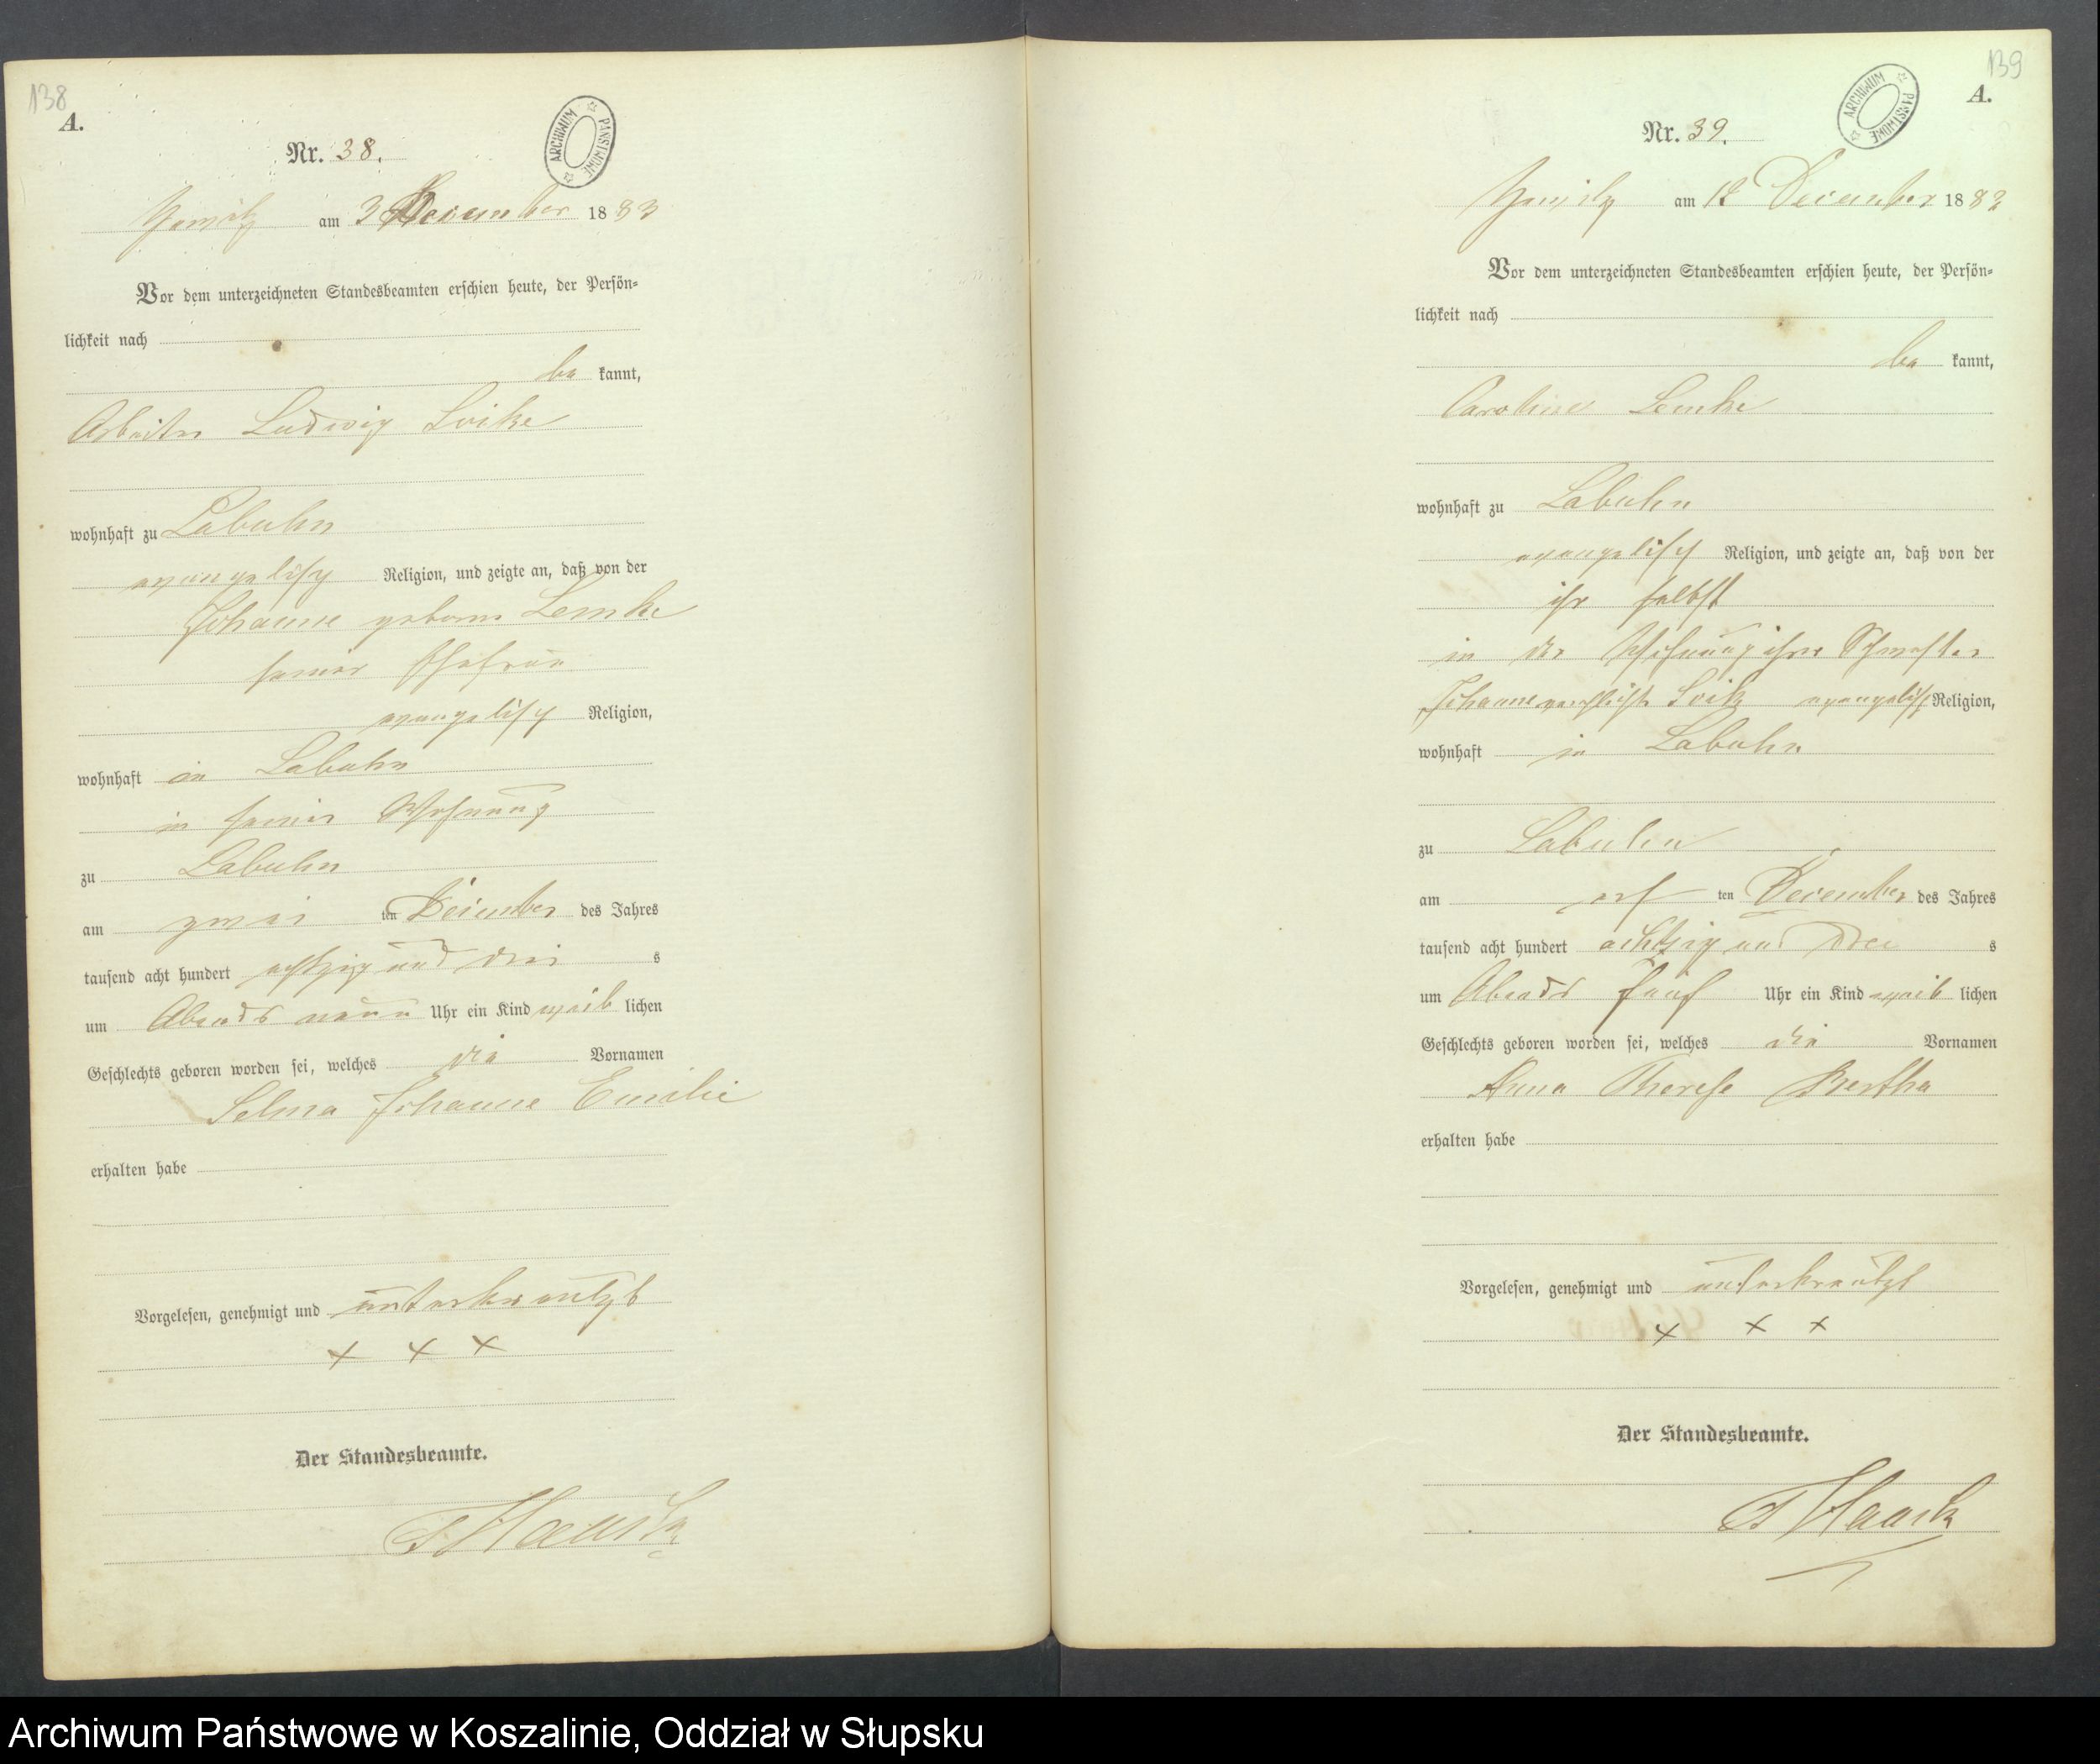 138
A.
Nr. 38.
ARCHIWUM PAŃSTWOWE
am 3 December 1883
Vor dem unterzeichneten Standesbeamten erschien heute, der Persön-
lichkeit nach
be kannt,
Arbeiter Ludwig
wohnhaft zu Labuhn
evangelisch Religion, und zeigte an, daß von der
Johanne geborne Lemke
seiner Ehefrau
evangelisch Religion,
wohnhaft in Labuhn
in seiner Wohnung
zu Labuhn
am zwei ten December des Jahres
tausend acht hundert achtzig und drei s
um Abends neun Uhr ein Kind weib lichen
Geschlechts geboren worden sei, welches die Vornamen
Selma Johanne Emilie
erhalten habe
Vorgelesen, genehmigt und unterkreutzt
+ + +
Der Standesbeamte.
139
A.
Nr. 39.
ARCHIWUM PAŃSTWOWE
am December 1883
Vor dem unterzeichneten Standesbeamten erschien heute, der Persön-
lichkeit nach
be kannt,
Caroline Lemke
wohnhaft zu Labuhn
evangelisch Religion, und zeigte an, daß von der
ihr selbst
in der Wohnung ihrer Schwester
Johanne evangelisch Religion,
wohnhaft in Labuhn
zu Labuhn
am ten December des Jahres
tausend acht hundert achtzig und drei s
um Abends fünf Uhr ein Kind weib lichen
Geschlechts geboren worden sei, welches die Vornamen
Anna Therese Bertha
erhalten habe
Vorgelesen, genehmigt und unterkreutzt
+ + +
Der Standesbeamte.
Haack
Archiwum Państwowe w Koszalinie, Oddział w Słupsku